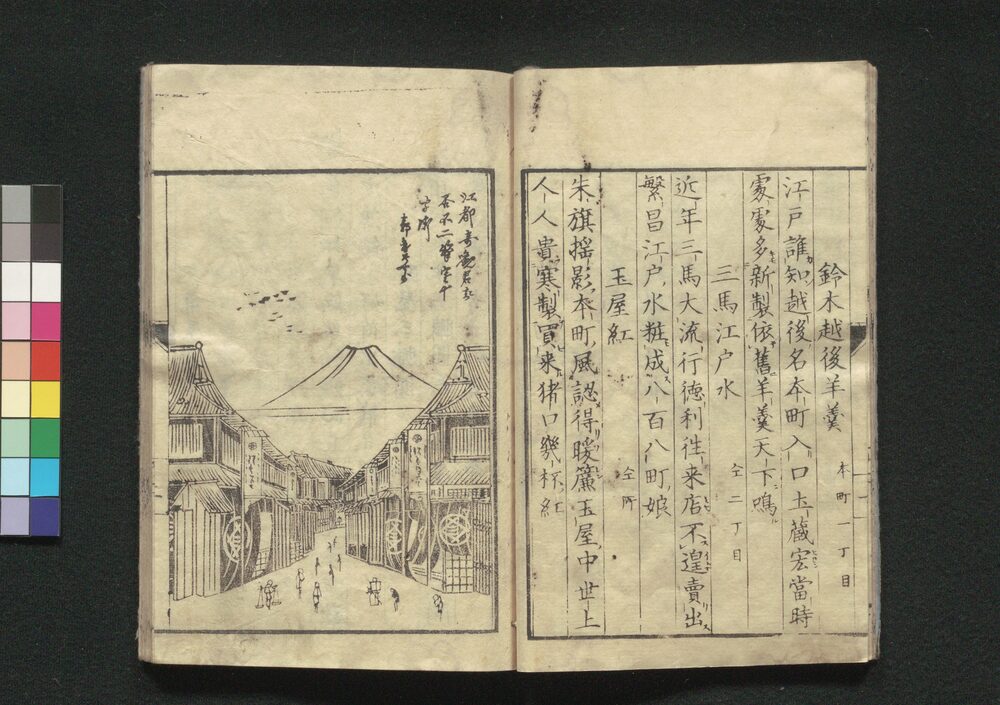 鈴木越後羊羹 本町一丁目
江戸誰知越後名本町入口土蔵宏當時
家家多新製依舊羊羹天下鳴
三馬江戸水 仝二丁目
近年三馬大流行徳利徃来店不遑賣出
繁昌江戸水粧成八百八町娘
玉屋紅 仝所
朱旗揺影本町風認得暖簾玉屋中世上
人人貴寒製買来猪口幾杯紅